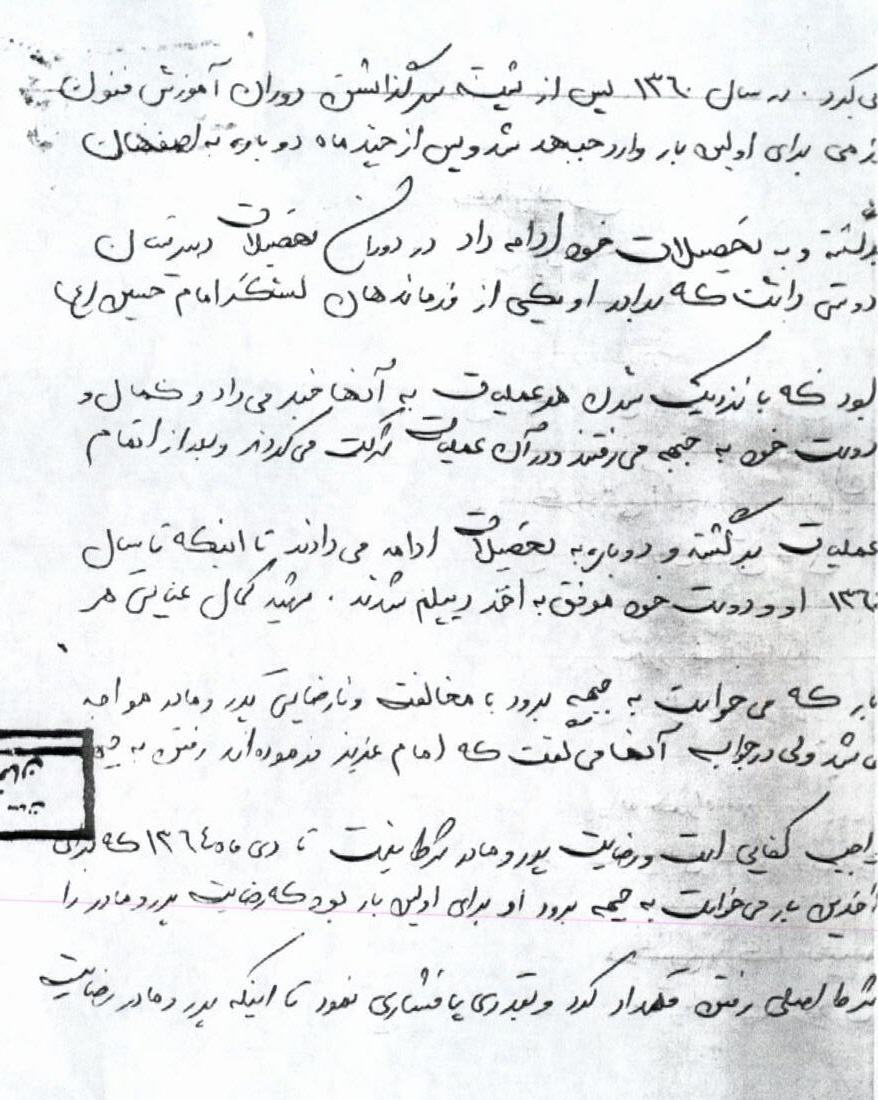 می کرد. در سال ۱۳۶۰ پس از پشت سر گذاشتن دوران آموزش فنون
رزمی برای اولین بار وارد جبهه شد و پس از چند ماه دوباره به اصفهان
برگشته و به تحصیلات خود ادامه داد در دوران تحصیلات دبیرستان
دوستی داشت که برادر او یکی از فرماندهان لشکر امام حسین (ع)
بود که با نزدیک شدن هر عملیات به آنها خبر می داد و کمال و
دوست خود به جبهه می رفتند و در آن عملیات شرکت می کردند و بعد از اتمام
عملیات برگشته و دوباره به تحصیلات ادامه می دادند تا اینکه تا سال
او و دوست خود موفق به اخذ دیپلم شدند. شهید کمال هر
بار که می خواست به جبهه برود با مخالفت و نارضایتی پدر و مادر مواجه
می شد ولی در جواب آنها می گفت که امام عزیز فرموده اند رفتن به
واجب کفایی است و رضایت پدر و مادر شرط نیست تا دی ماه ۱۳۶۴ که برای
آخرین بار می خواست به جبهه برود او برای اولین بار بود که رضایت پدر و مادر را
شرط اصلی رفتن قلمداد کرد و بقدری پافشاری نمود تا اینکه پدر و مادر رضایت